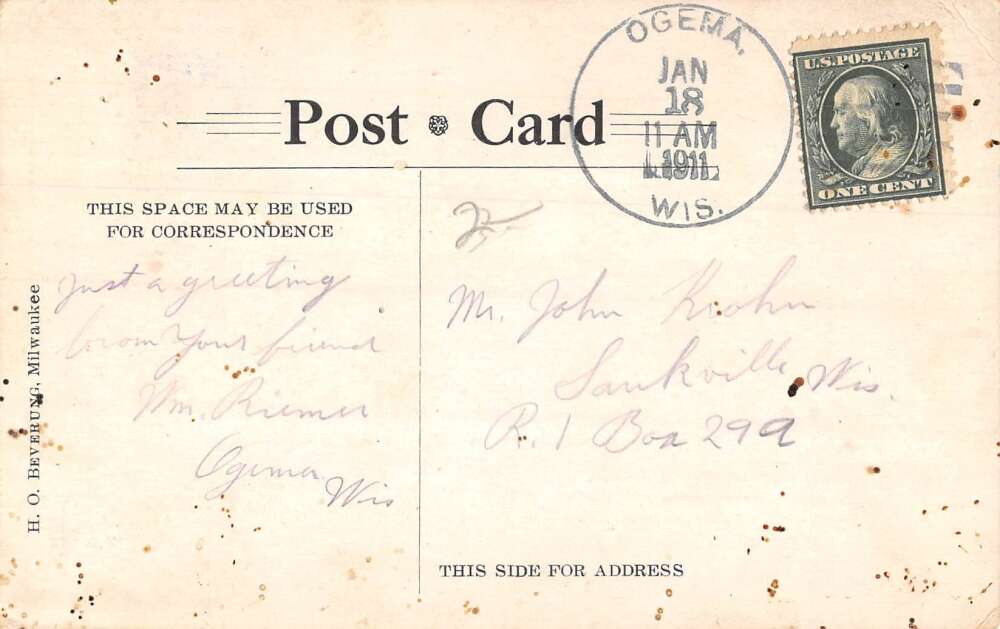 OGEMA,
JAN
18
11 AM
1911
WIS.
U.S. POSTAGE
ONE CENT
Post Card
THIS SPACE MAY BE USED
FOR CORRESPONDENCE
Just a greeting
from Your friend
Wm. Riemer
Ogema
Wis
H. O. BEVERUNG, Milwaukee
Mr. John Krohn
Saukville Wis.
R. 1 Box 299
THIS SIDE FOR ADDRESS